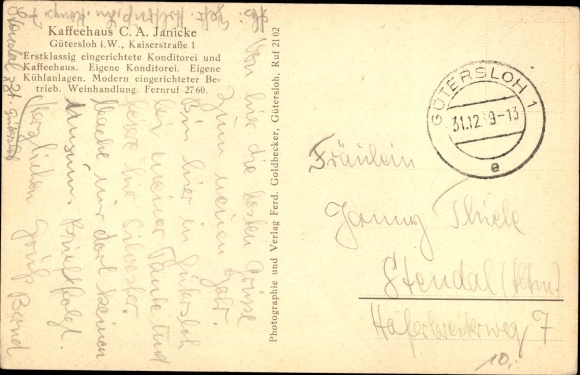 Kaffeehaus C. A. Janicke
Gütersloh i.W., Kaiserstraße 1
Erstklassig eingerichtete Konditorei und
Kaffeehaus. Eigene Konditorei. Eigene
Kühlanlagen. Modern eingerichteter Be-
trieb. Weinhandlung. Fernruf 2760.
Von hier die besten Grüße
zum neuen Jahr.
Bin hier in Gütersloh
bei meiner Tante und
feiere hier Silvester.
Mache mir dort keinen
Unsinn. Brief folgt.
Herzlichen Gruß Bernd
Stendal
Photographie und Verlag Ferd. Goldbecker, Gütersloh, Ruf 2102
GÜTERSLOH 1
31.12.39-13
e
Fräulein
Jenny Thiele
Stendal
7
10,-